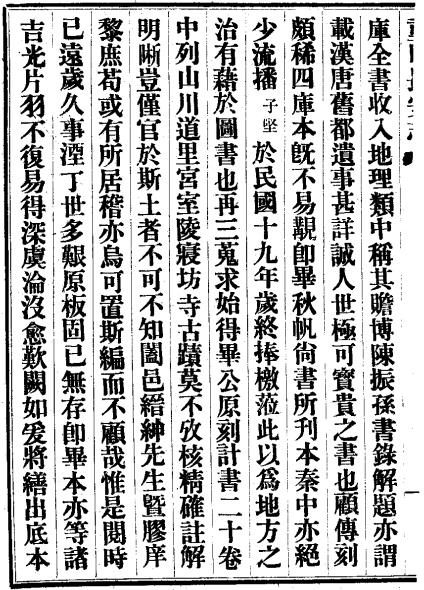 庫全書收入地理類中稱其贍博陳振孫書錄解題亦謂
載漢唐舊都遺事甚詳誠人世極可寶貴之書也顧傳刻
頗稀四庫本旣不易覯卽畢秋帆尙書所刊本秦中亦絕
少流播子堅於民國十九年歲終捧檄蒞此以爲地方之
治有藉於圖書也再三蒐求始得畢公原刻計書二十卷
中列山川道里宮室陵寢坊寺古蹟莫不攷核精確註解
明晰豈僅官於斯土者不可不知闔邑縉紳先生曁膠庠
黎庶苟或有所居稽亦烏可置斯編而不顧哉惟是閱時
已遠歲久事湮丁世多艱原板固已無存卽畢本亦等諸
吉光片羽不復易得深虞淪沒愈歎闕如爰將繕出底本